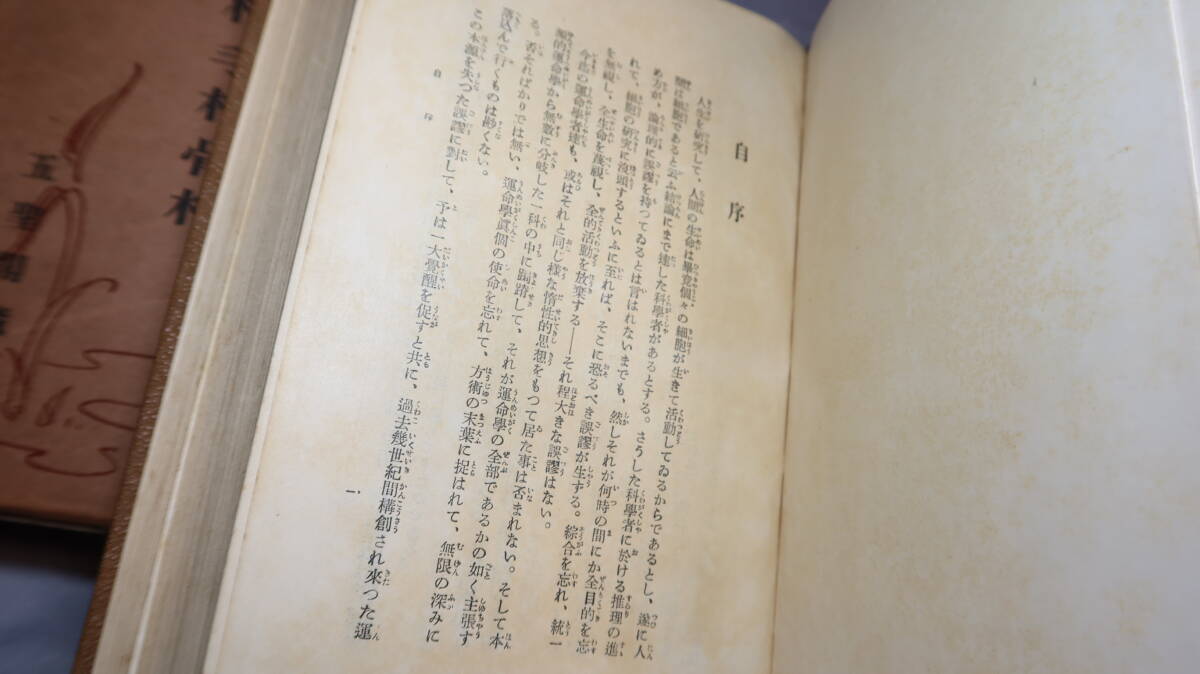 自序
人生を研究して、人間の生命は畢竟個々の細胞が生きて活動してゐるからであるとし、遂に人
間は細胞であると云ふ結論にまで達した科學者があるとする。さうした科學者に於ける推理の進
め方が、論理的に誤謬を持つてゐるとは言はれないまでも、然しそれが何時の間にか全目的を忘
れて、細胞の研究に沒頭するといふに至れば、そこに恐るべき誤謬が生ずる。綜合を忘れ、統一
を無視し、全生命を蔑視し、全的活動を放棄する——それ程大きな誤謬はない。
今迄の運命學者達も、或はそれと同じ樣な惰性的思想をもつて居た事は否まれない。そして本
源的運命學から無數に分岐した一科の中に跼蹐して、それが運命學の全部であるかの如く主張す
る。否そればかりでは無い、運命學眞個の使命を忘れて、方術の末葉に捉はれて、無限の深みに
落込んで行くものは尠くない。
この本源を失つた誤謬に對して、予は一大覺醒を促すと共に、過去幾世紀間構創され來つた運
自序
一
五聖閣